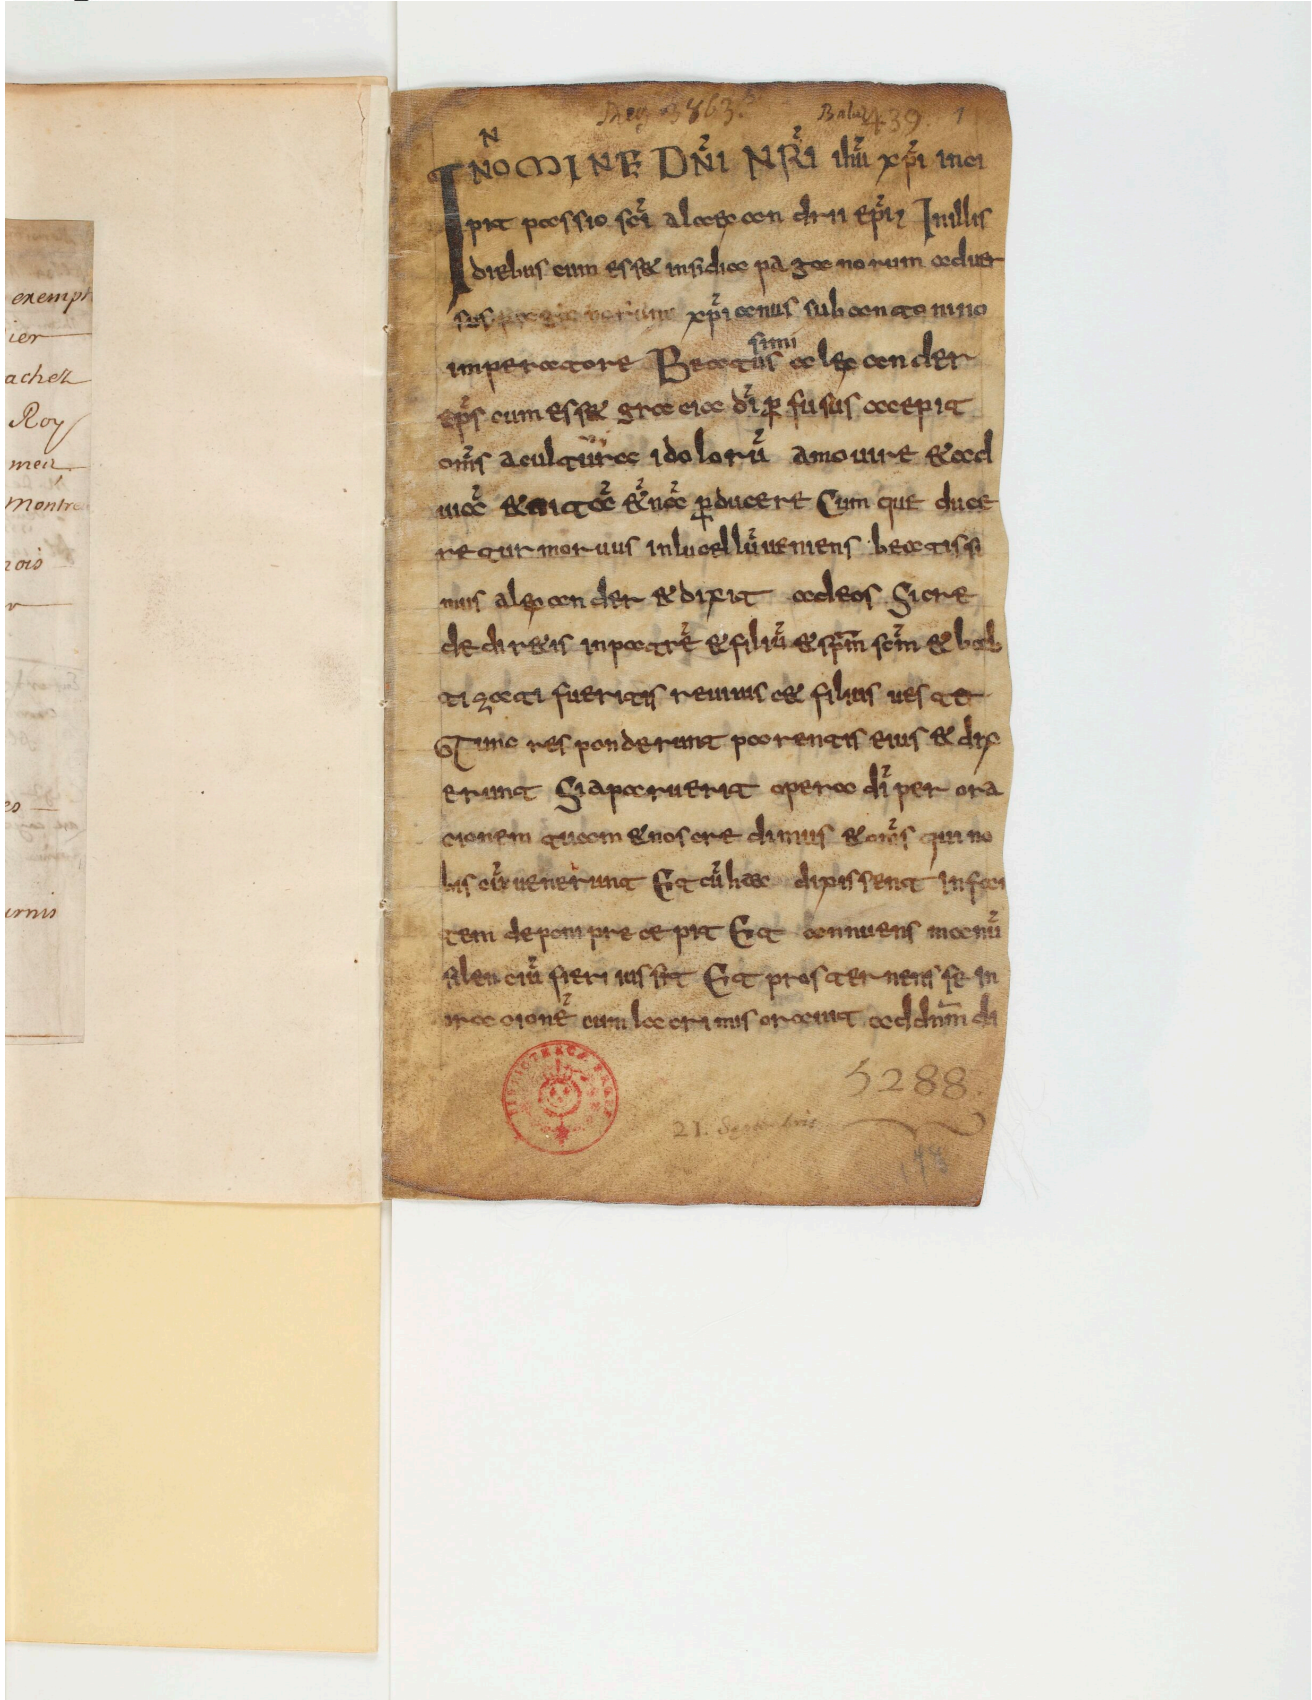 exempt
ier
achez
Roy
Montre
nois
r
es
urnis
Reg. 3863.
Baluz 439. 1
N
IN NOMINE DN̄I NR̄I ih̄u xp̄i inci
pit passio sc̄i alaxandrii ep̄i Inillis
diebus cum esset insidia paganorum aduer
sus xp̄ianus sub antonino
simi
imperatore Beatus alexander
ep̄s cum esset gracia dī ꝑfusus accepit
om̄s acultura idolorū amouire et ad
uiā et uitā et nā ꝑducere Cumque duce
retur moruus inlucellū ueniens beatissi
mus alexander et dixit adeos Sicre
dedireis inpatrē et filiū et sp̄m sc̄m et bab
tizati fueritis reuiuiscet filius uester
Tunc responderunt parentis eius et dix
erunt Siaparuerit opera dī per ora
cionem tuam et nos credimus et om̄s qui no
bis cū uenerunt Et cū hæc dixissent infan
tem deponi precepit Et annuens manū
silenciū fieri iussit Et prosternens se in
oracionē cum lacrimis orauit ad dn̄m di
BIBLIOTHECÆ REGIÆ
5288.
21. Septembris